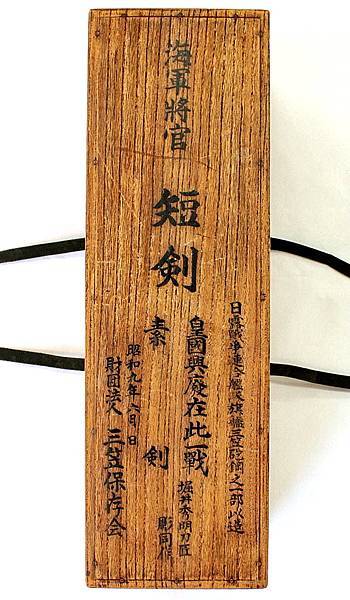 海軍將官
短剣
日露戰争連合艦隊旗艦三笠砲鋼之一部以造
皇國興廢在此一戰
堀井秀明刀匠
彫同作
素剣
昭和九年六月 日
財団法人 三笠保存会